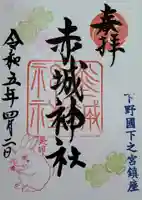 奉拝
下野國下之宮鎮座
赤城神社
令和五年四月二日